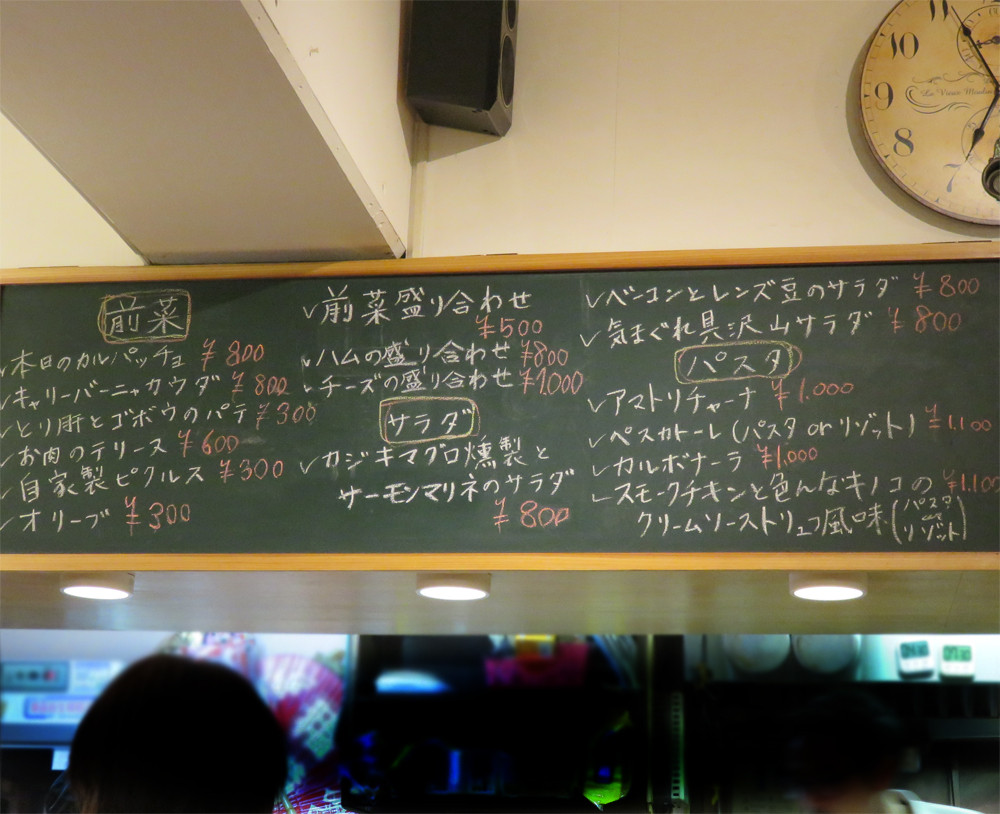 前菜
✓本日のカルパッチョ ¥800
✓キャリーバーニャカウダ ¥800
✓とり肝とゴボウのパテ ¥300
✓お肉のテリーヌ ¥600
✓自家製ピクルス ¥300
✓オリーブ ¥300
✓前菜盛り合わせ
¥500
✓ハムの盛り合わせ ¥800
✓チーズの盛り合わせ ¥1,000
サラダ
✓カジキマグロ燻製と
サーモンマリネのサラダ
¥800
✓ベーコンとレンズ豆のサラダ ¥800
✓気まぐれ具沢山サラダ ¥800
パスタ
✓アマトリチャーナ ¥1,000
✓ペスカトーレ(パスタ or リゾット) ¥1,100
✓カルボナーラ ¥1,000
✓スモークチキンと色んなキノコの ¥1,100
クリームソーストリュフ風味(パスタ or リゾット)
11
10
9
8
7
Le Vieux Moulin